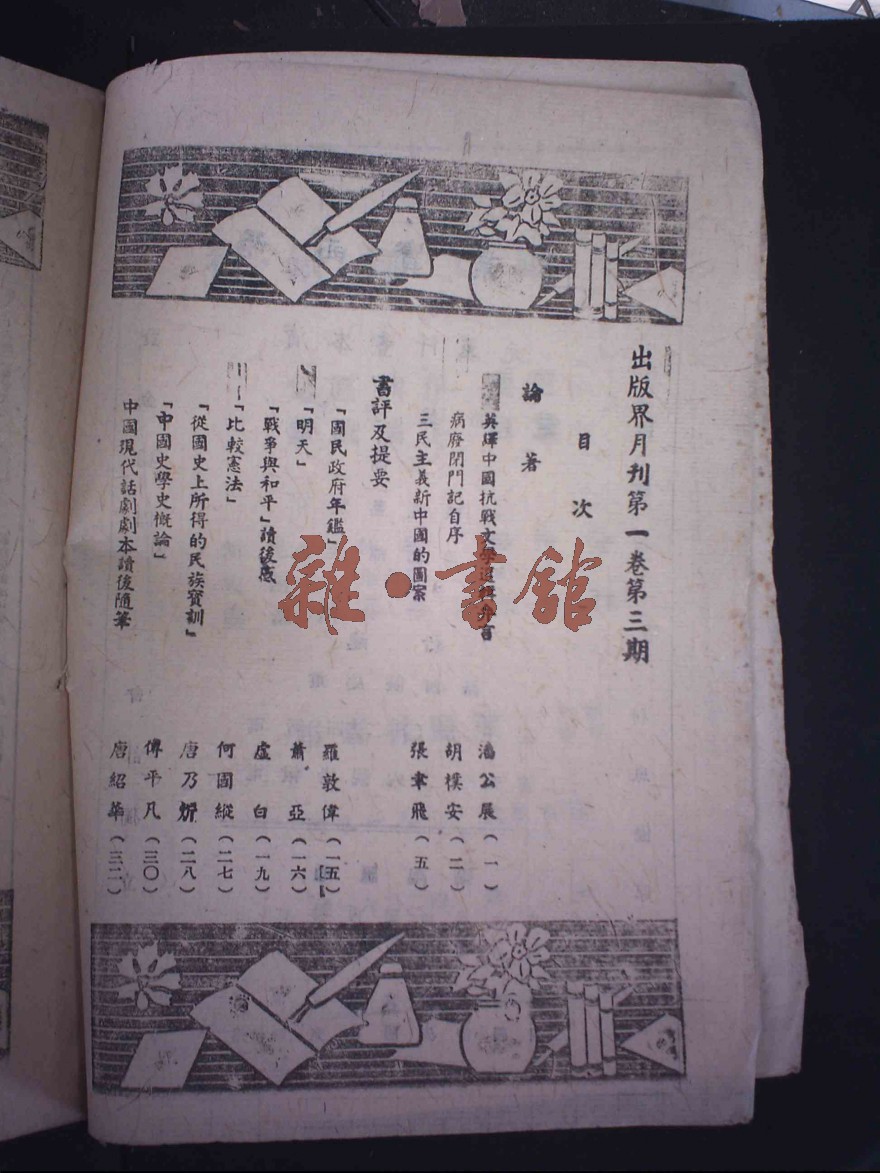 出版界月刊第一卷第三期
目次
論著
英譯中國抗戰文學選輯弁言 潘公展(一)
病廢閉門記自序 胡樸安(二)
三民主義新中國的圖案 張聿飛(五)
書評及提要
「國民政府年鑑」 羅敦偉(一五)
「明天」 蕭亞(一六)
「戰爭與和平」讀後感 虛白(一九)
「比較憲法」 何國縱(二七)
「從國史上所得的民族寶訓」 唐乃(二八)
「中國史學史概論」 傅平凡(三〇)
中國現代話劇劇本讀後隨筆 唐紹華(三二)
雜·書館